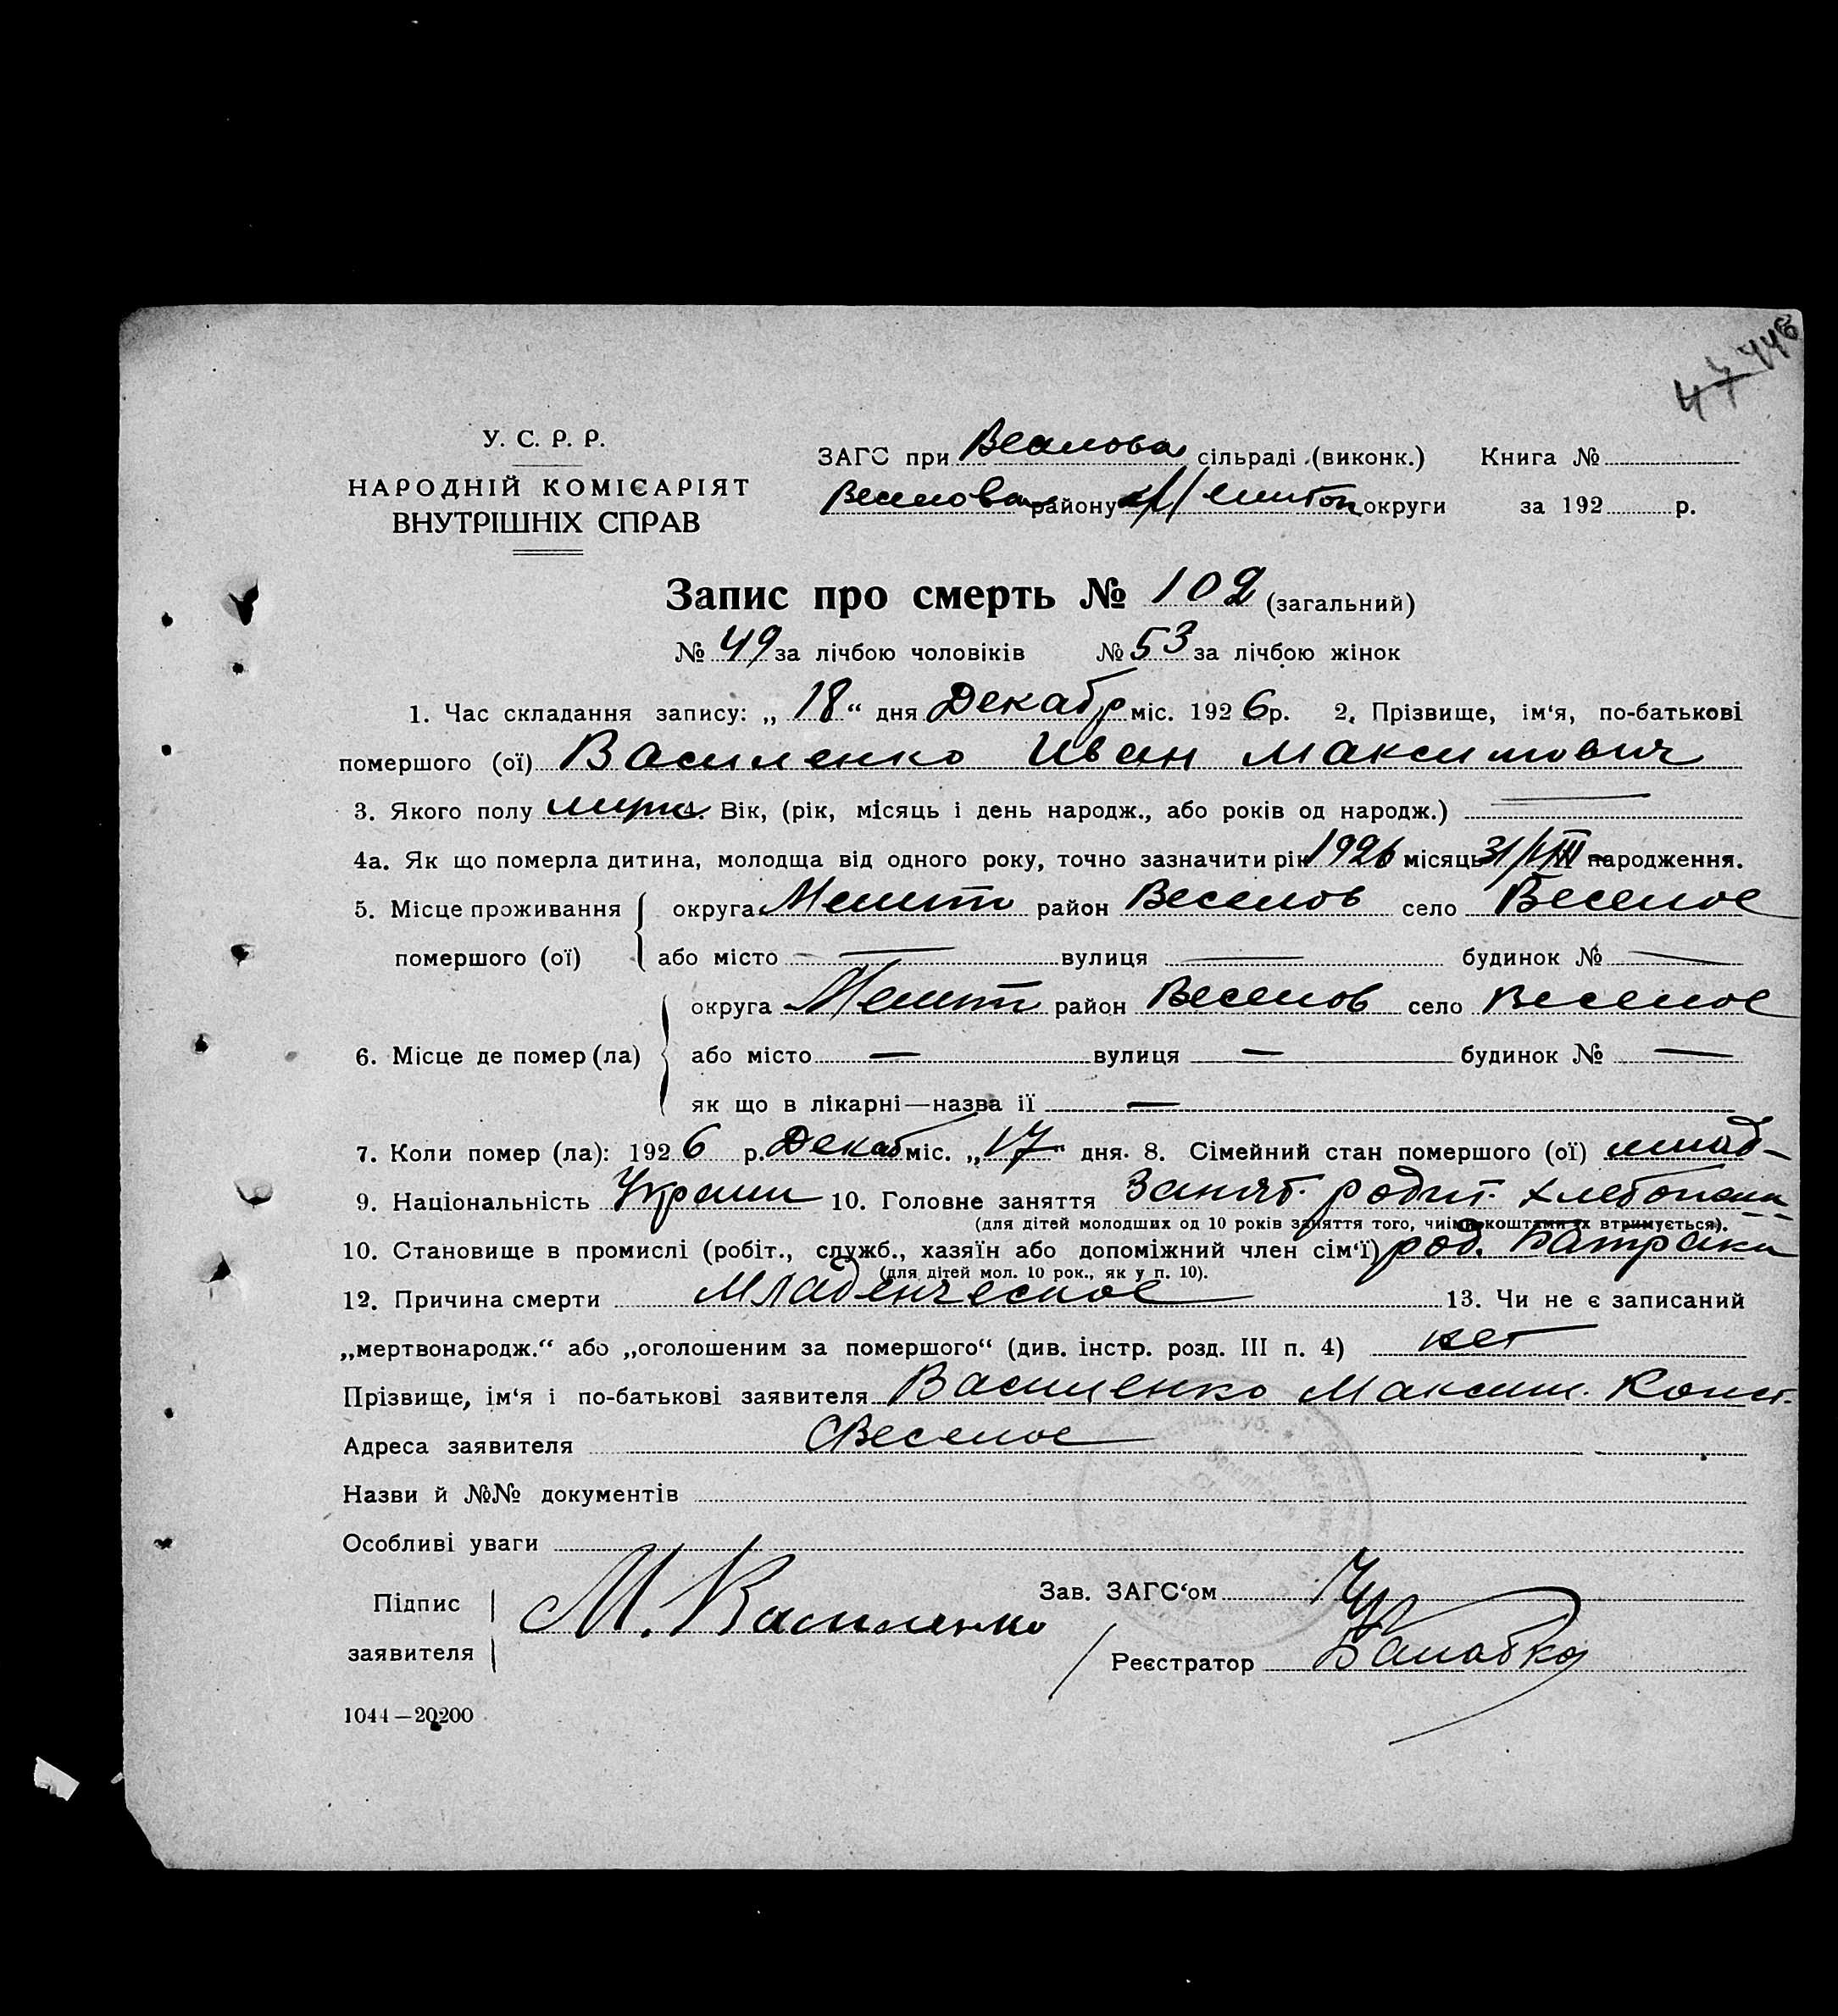 У. С. Р. Р.
НАРОДНІЙ КОМІСАРІЯТ
ВНУТРІШНІХ СПРАВ
ЗАГС при сільраді (виконк.) Книга №
району округи за 192 р.
Запис про смерть № 102 (загальний)
№ 49 за лічбою чоловіків № 53 за лічбою жінок
1. Час складання запису: „ 18 “ дня Декабр міс. 1926 р. 2. Прізвище, ім‘я, по-батькові
помершого (ої) Василенко Иван Максимович
3. Якого полу Вік, (рік, місяць і день народж., або років од народж.) —
4а. Як що померла дитина, молодща від одного року, точно зазначити рік 1926 місяць 31/VIII народження.
5. Місце проживання округа Мелит район Веселов село Веселое
помершого (ої) або місто — вулиця — будинок № —
округа Мелит район Веселов село Веселое
6. Місце де помер (ла) або місто — вулиця — будинок № —
як що в лікарні—назва ії —
7. Коли помер (ла): 1926 р. Декаб міс. „17“ дня. 8. Сімейний стан помершого (ої) млад-
9. Національність Украин 10. Головне заняття Занят. родит. хлебопаш
(для дітей молодших од 10 років заняття того, чиїми коштами їх втримується).
10. Становище в промислі (робіт., служб., хазяїн або допоміжний член сім‘ї) род. Батраки
(для дітей мол. 10 рок., як у п. 10).
12. Причина смерти Младенческое 13. Чи не є записаний
„мертвонародж.“ або „оголошеним за помершого“ (див. інстр. розд. III п. 4) нет
Прізвище, ім‘я і по-батькові заявителя Василенко Максим. Конст.
Адреса заявителя С Веселое
Назви й №№ документів
Особливі уваги
Підпис
заявителя М. Василенко
Зав. ЗАГС‘ом
Реєстратор
1044—20200